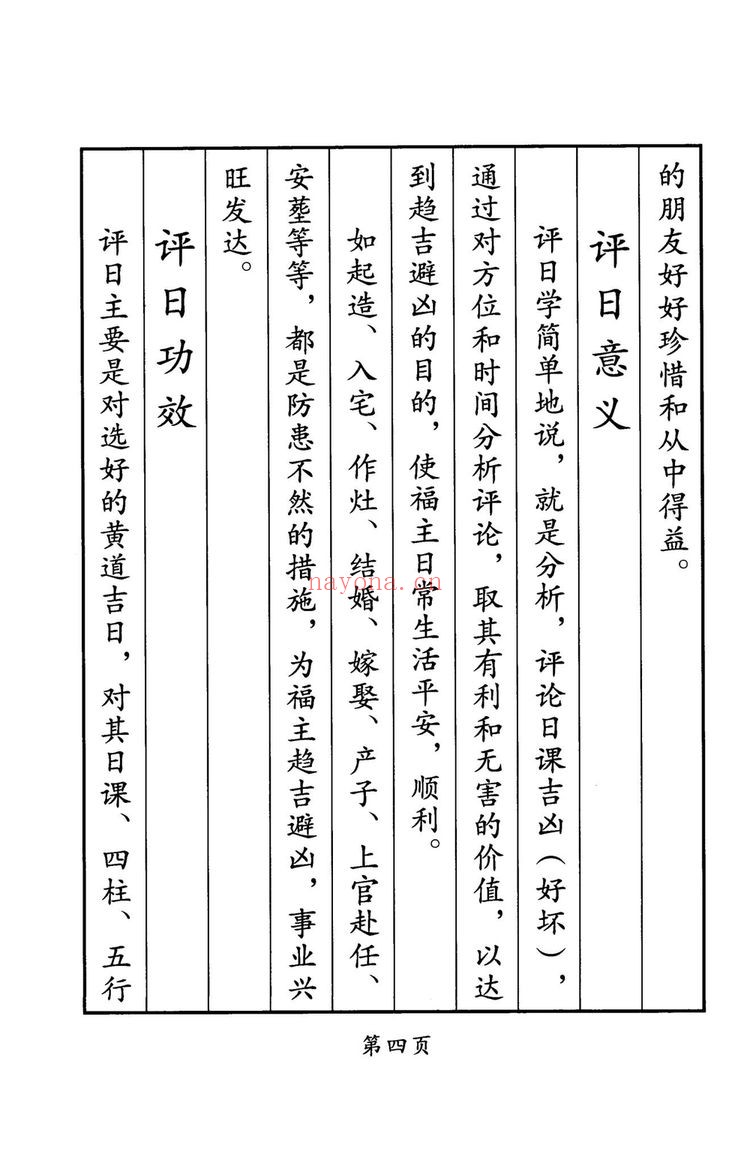 的朋友好好珍惜和从中得益。
评日意义
评日学简单地说，就是分析，评论日课吉凶（好坏），
通过对方位和时间分析评论，取其有利和无害的价值，以达
到趋吉避凶的目的，使福主日常生活平安，顺利。
如起造、入宅、作灶、结婚、嫁娶、产子、上官赴任、
安墓等等，都是防患不然的措施，为福主趋吉避凶，事业兴
旺发达。
评日功效
评日主要是对选好的黄道吉日，对其日课、四柱、五行
nayona.cn
第四页